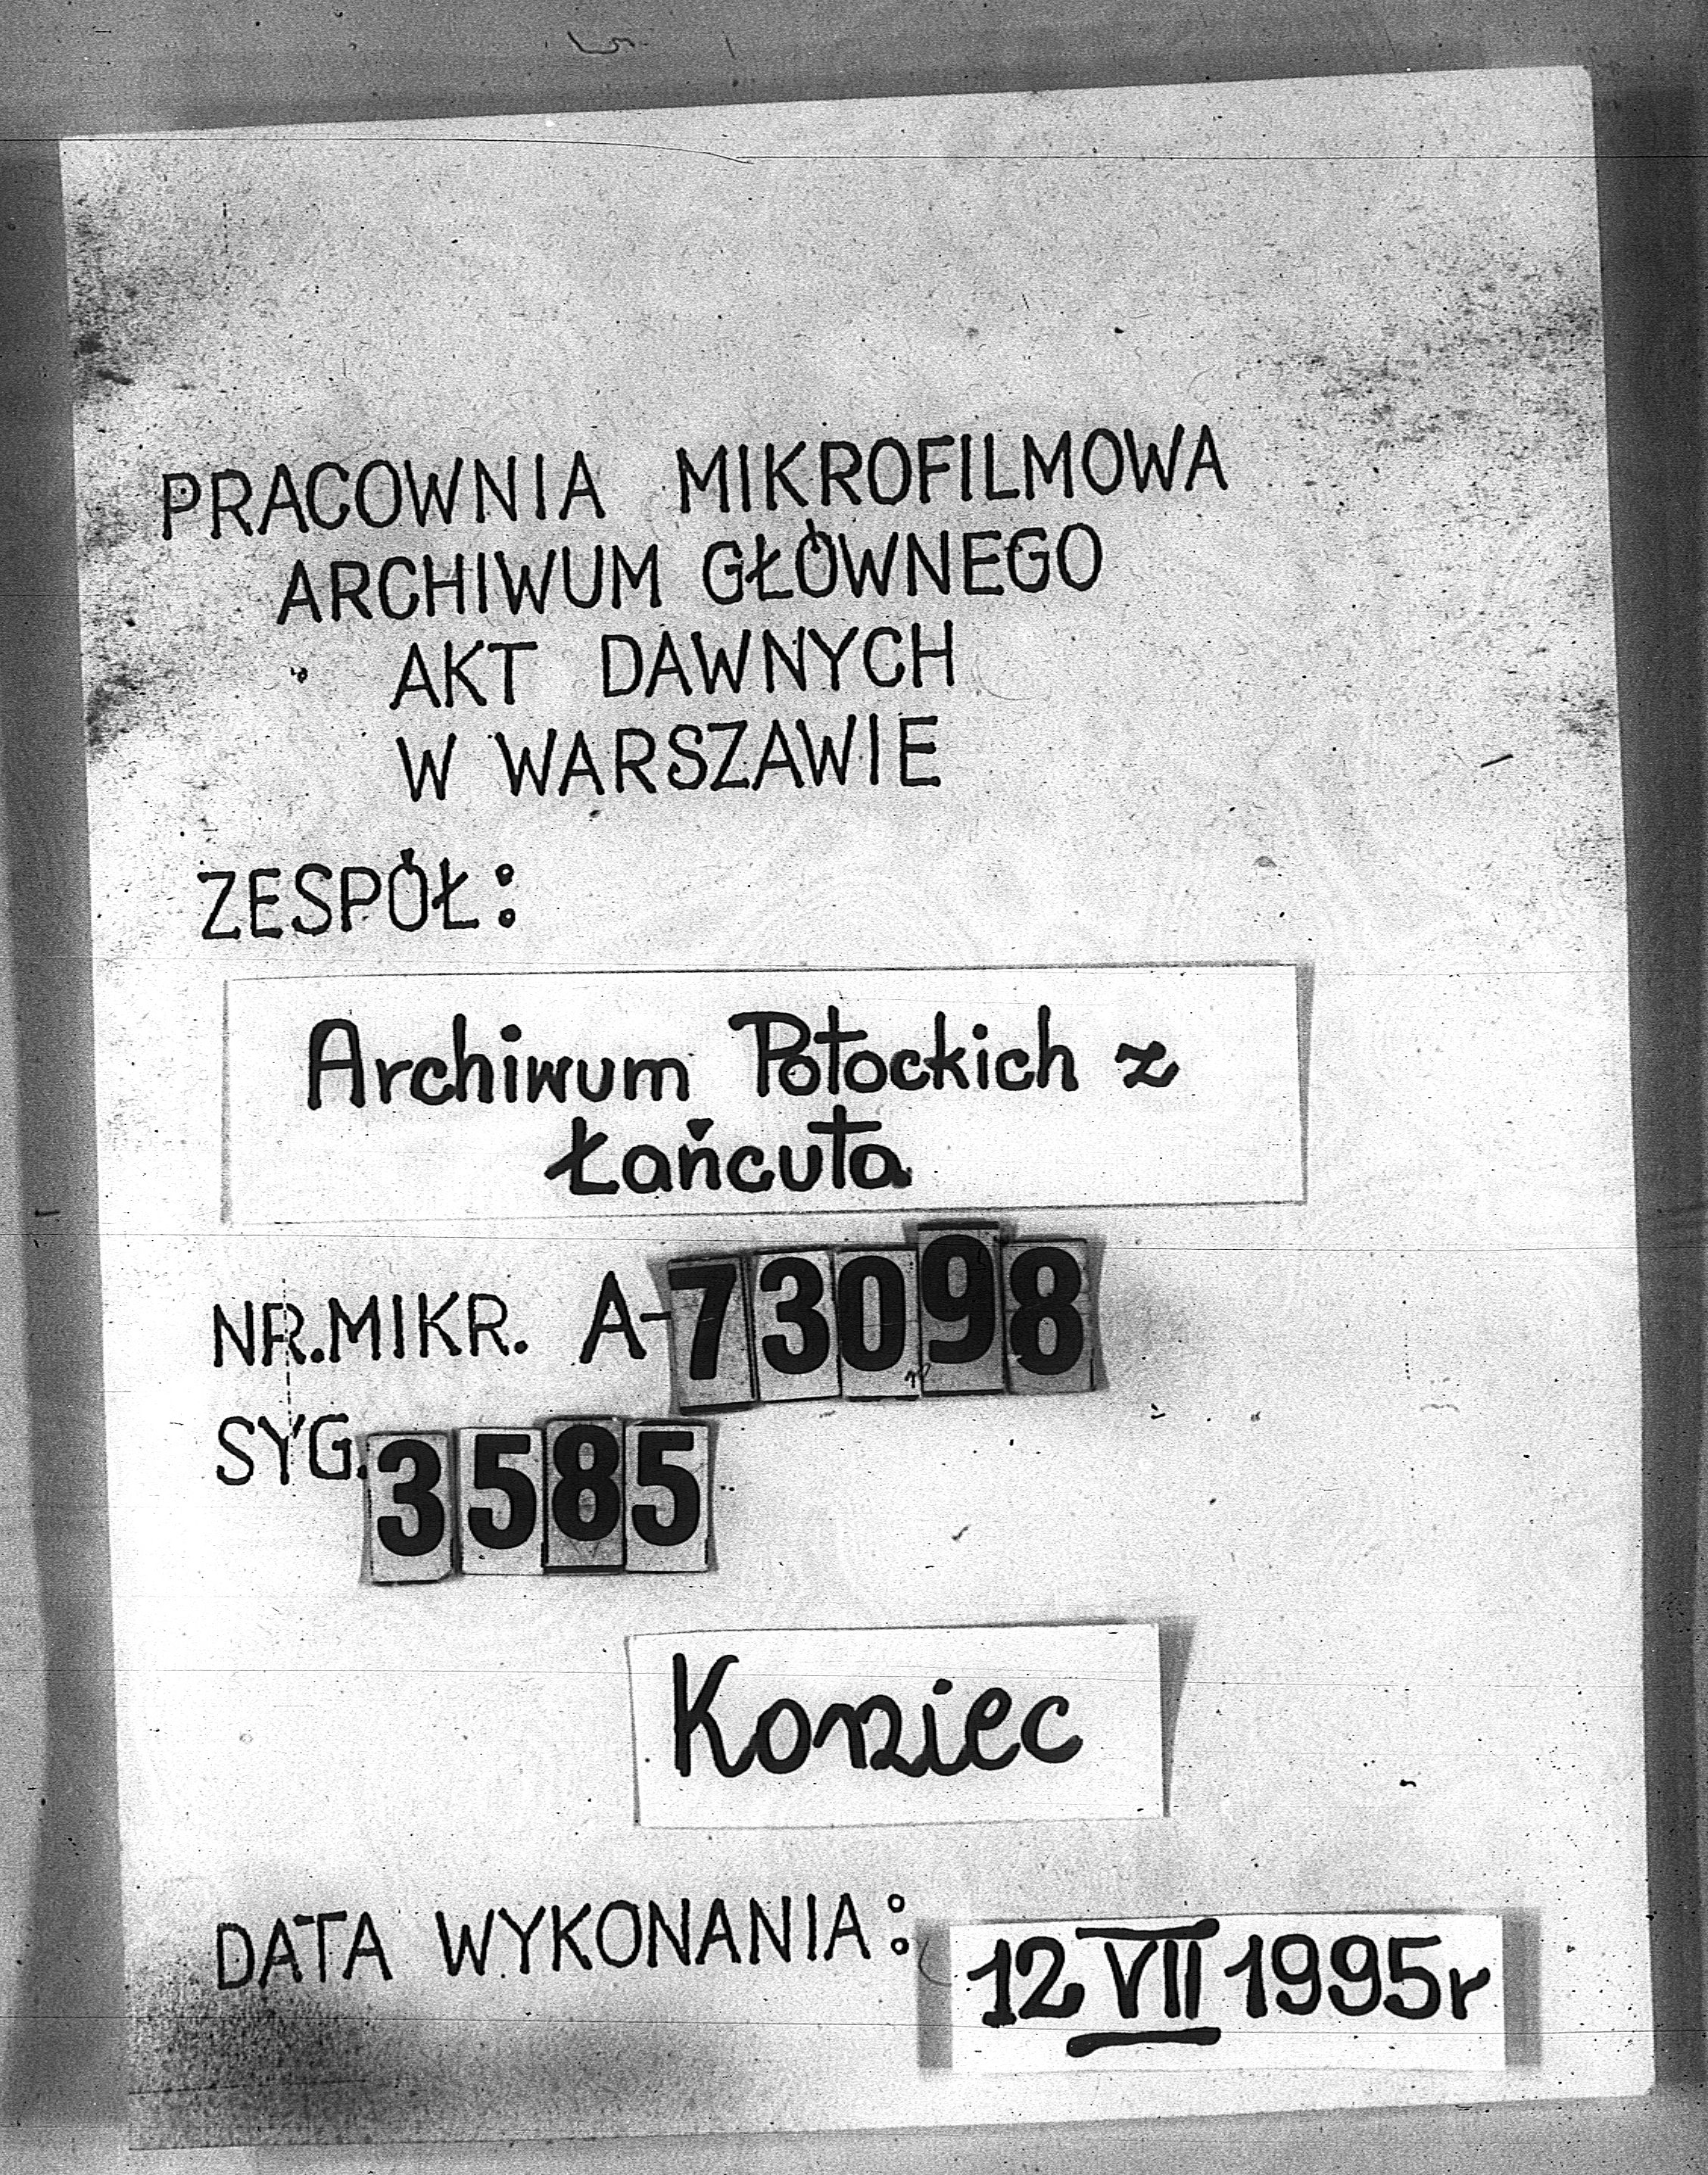 PRACOWNIA MIKROFILMOWA
ARCHIWUM GŁÓWNEGO
AKT DAWNYCH
W WARSZAWIE
ZESPÓŁ:
Archiwum Potockich z
Łańcuta
NR. MIKR. A-73098
SYG. 3585
Koniec
DATA WYKONANIA: 12 VII 1995r